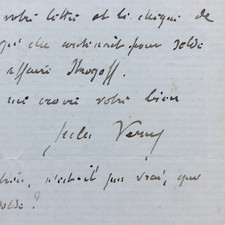 votre lettre et le chèque de
que me revenait pour solde
affaire Strogoff.
me croire votre bien
Jules Verne
n'est-il pas vrai, que
solde ?